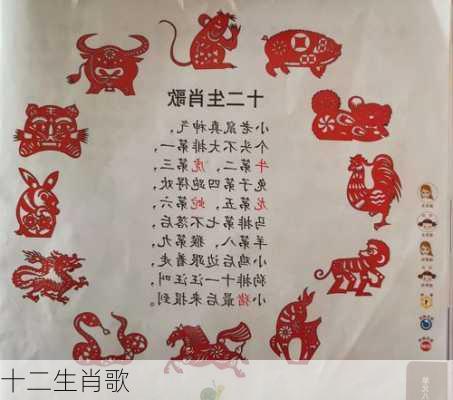 十二生肖歌
小老鼠真神气，
个头不大排第一，
牛第二，虎第三，
兔子第四跑得欢，
龙第五，蛇第六，
马排第七不落后，
羊第八，猴第九，
小鸡后边跟着走，
狗排十一汪汪叫，
小猪最后来报到。
十二生肖歌